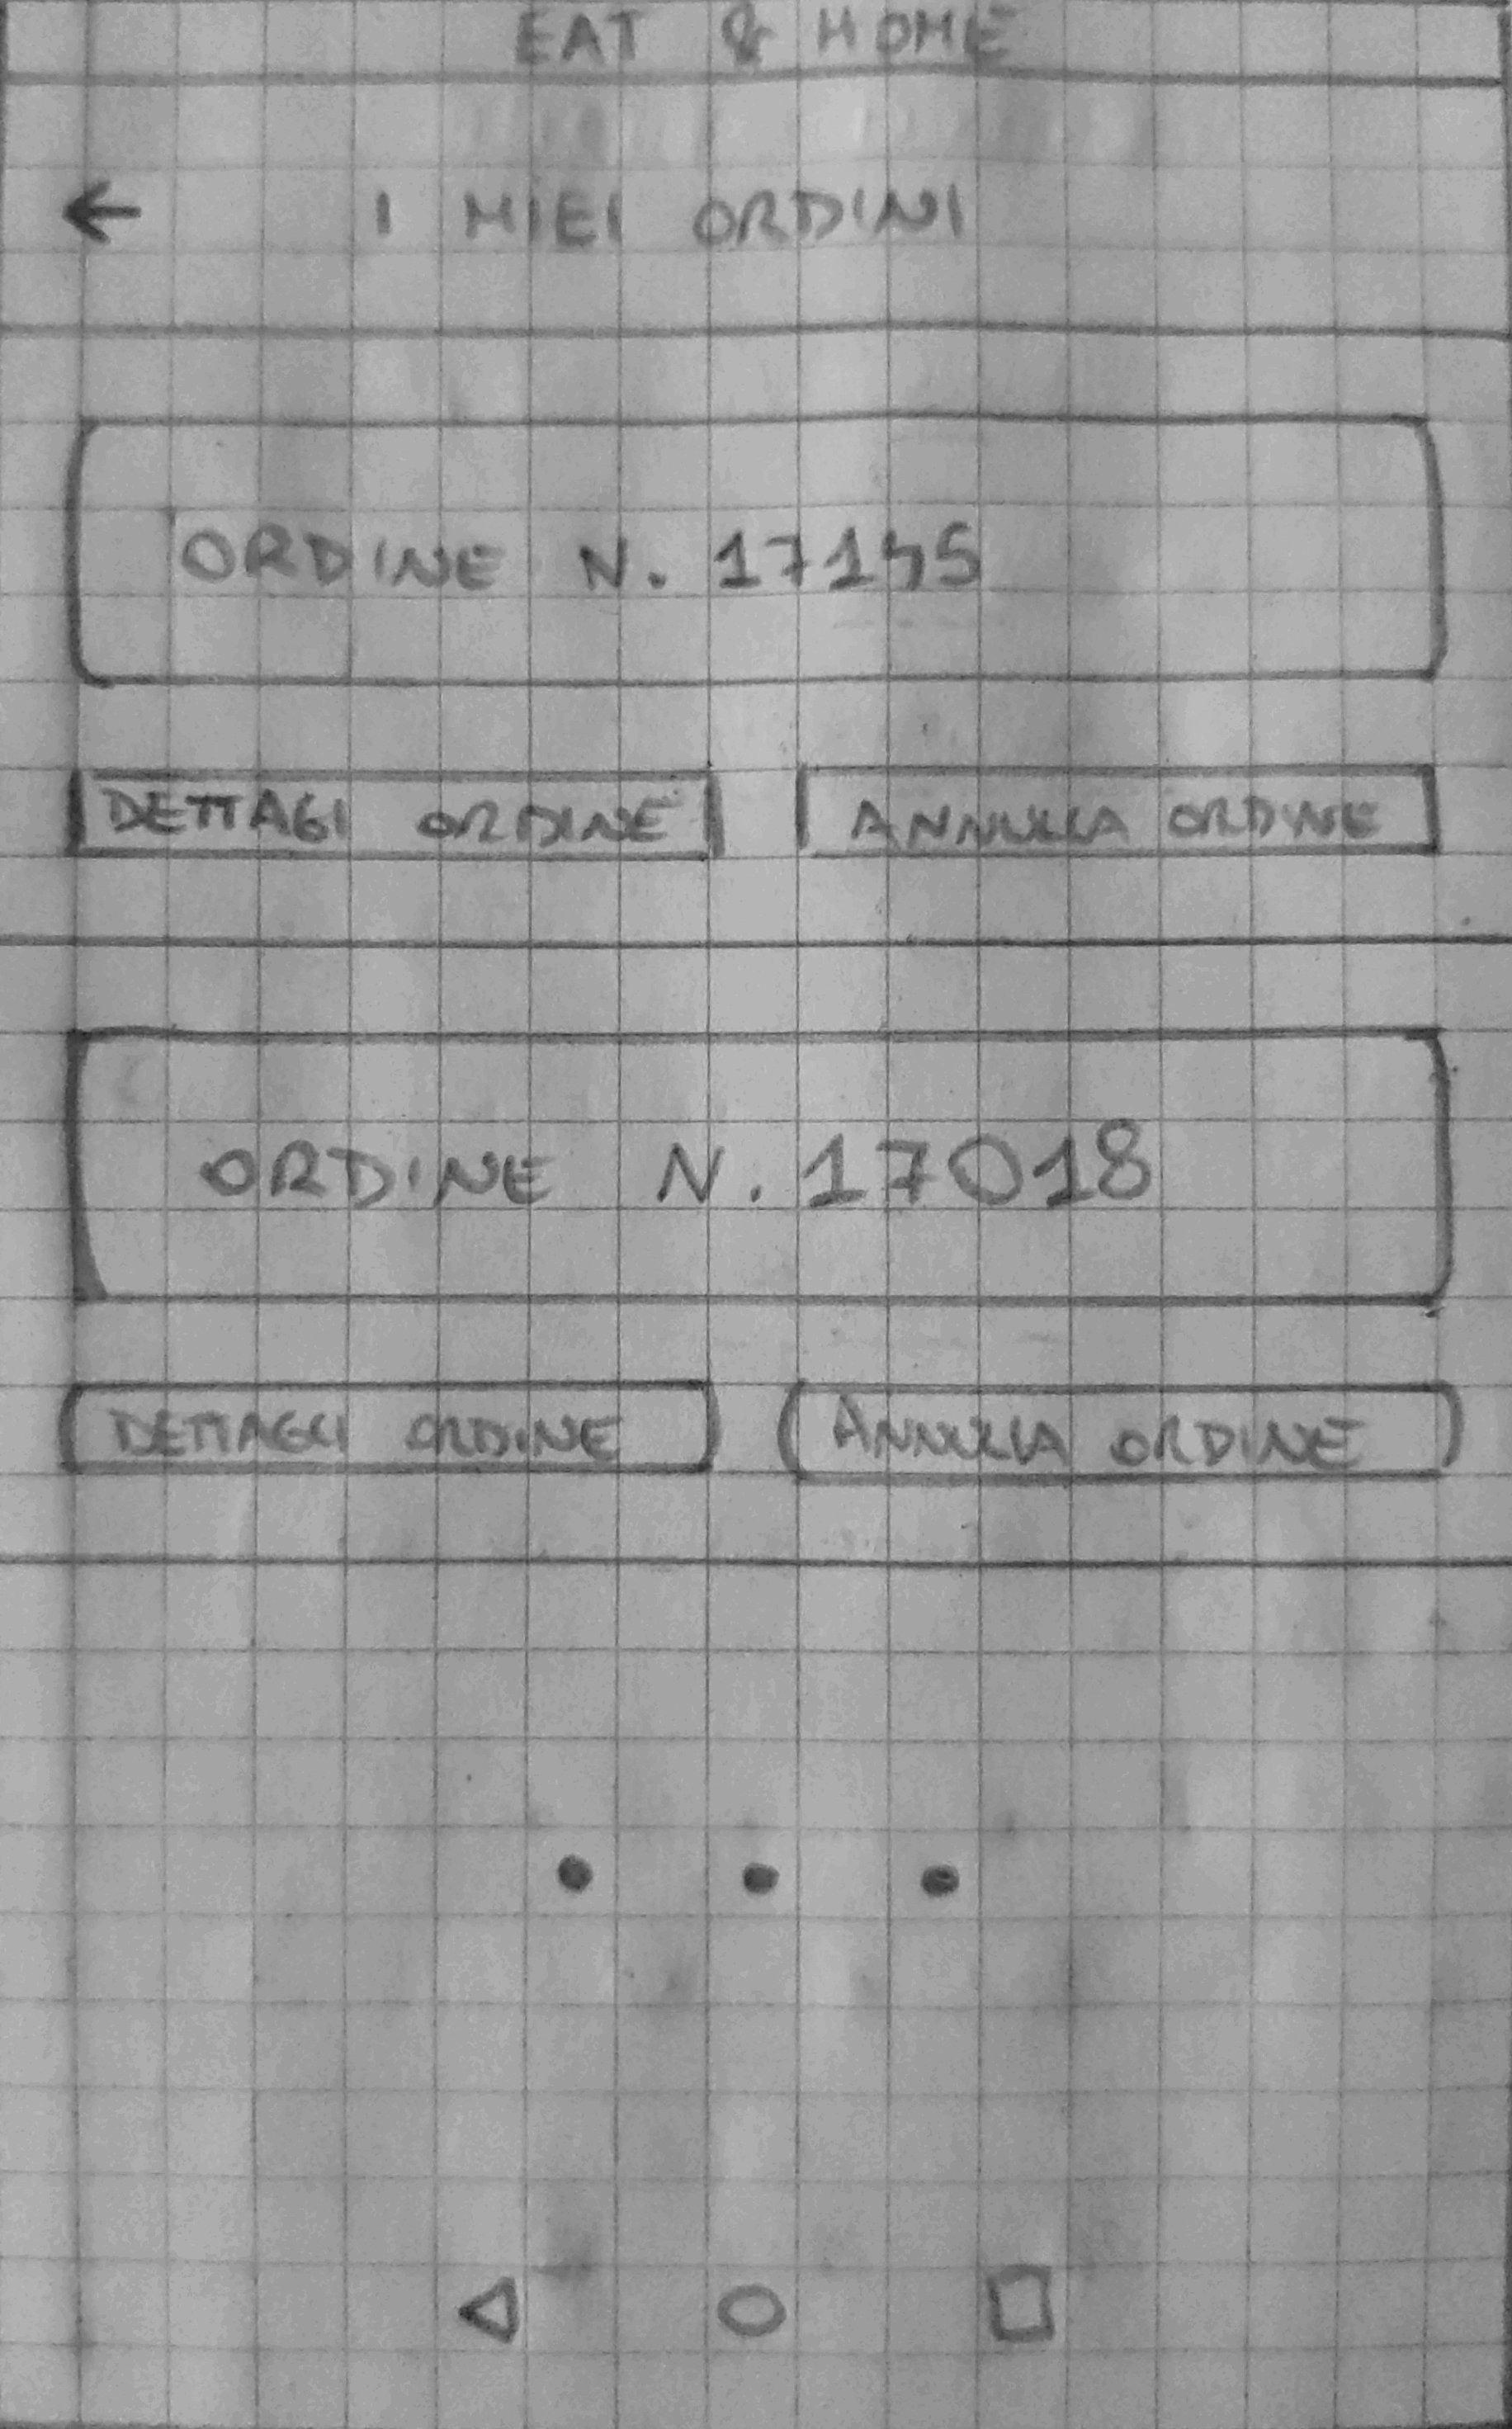 EAT & HOME
← I MIEI ORDINI
ORDINE N. 17145
DETTAGI ORDINE ANNULLA ORDINE
ORDINE N. 17018
DETTAGLI ORDINE ANNULLA ORDINE